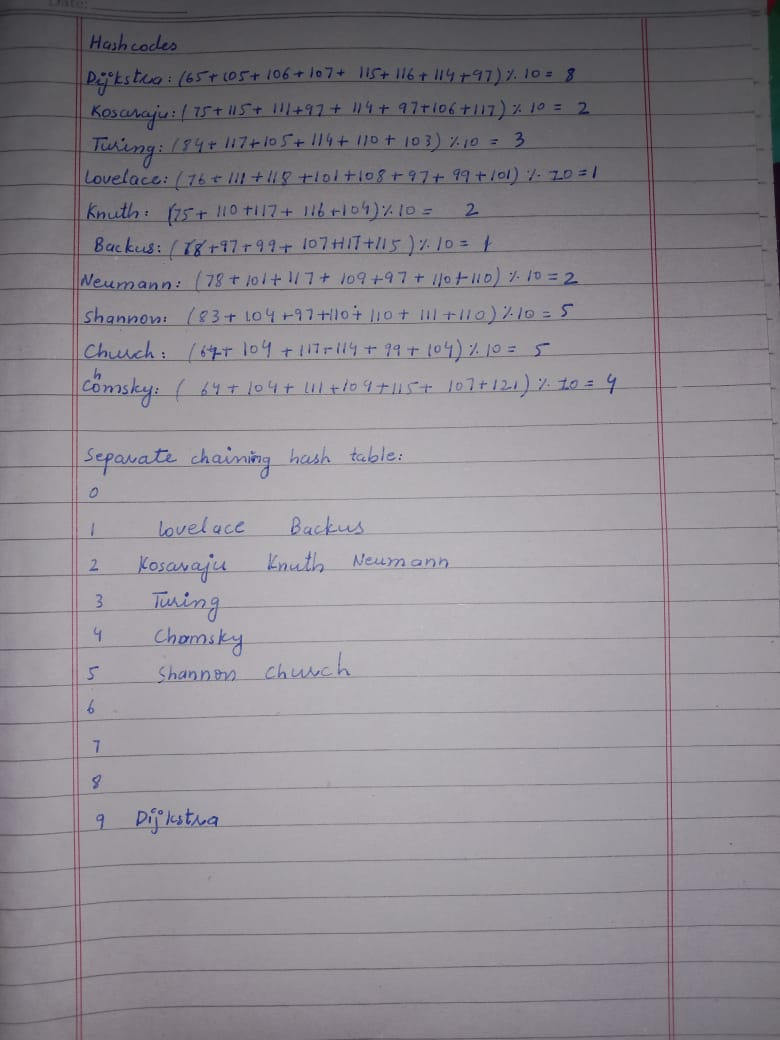 Date:
Hashcodes
Dijkstra: (65+105+106+107+ 115+116+114+97) % 10 = 8
Kosaraju: (75+115+ 111+97+ 114+ 97+106+117) % 10 = 2
Turing: (84+117+105+114+110+103) % 10 = 3
Lovelace: (76+111+118+101+108+97+99+101) % 10=1
Knuth: (75+ 110+117+ 116+104) % 10 = 2
Backus: (78+97+99+ 107+117+115) % 10 = 1
Neumann: (78+101+117+ 109+97+110+110) % 10=2
Shannon: (83+104+97+110+110+111+110) % 10=5
Church: (67+ 104+117+114+99+104) % 10= 5
Chomsky: ( 64+104+111+109+115+ 107+121) % 10=4
Separate chaining hash table:
0
1 Lovelace Backus
2 Kosaraju Knuth Neumann
3 Turing
4 Chomsky
5 Shannon Church
6
7
8
9 Dijkstra